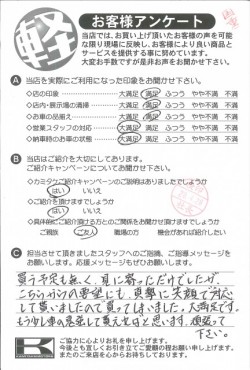 軽
お客様アンケート
当店では、お買い上げ頂いたお客様の声を可能
な限り現場に反映し、お客様により良い商品と
サービスを提供する事に努めています。
大変お手数ですが是非お声をお聞かせ下さい。
A 当店を実際にご利用になった印象をお聞かせ下さい。
◇店の印象 大満足 満足 ふつう やや不満 不満
◇店内・展示場の清掃 大満足 満足 ふつう やや不満 不満
◇お車の品揃え 大満足 満足 ふつう やや不満 不満
◇営業スタッフの対応 大満足 満足 ふつう やや不満 不満
◇納車時のお車の状態 大満足 満足 ふつう やや不満 不満
B 当店はご紹介を大切にしております。
ご紹介キャンペーンについてお聞かせ下さい。
◇カミタケご紹介キャンペーンのご説明はありましたでしょうか
はい いいえ
◇ご紹介を頂けますでしょうか
はい いいえ
◇具体的にご紹介頂ける方とのご関係をお聞かせ頂けますでしょうか
ご親族 ご友人 職場の方 機会があれば紹介したい
C 担当させて頂きましたスタッフへのご指摘、ご指導メッセージを
お願いします。応援メッセージもぜひお願いします。
買う予定も無く、見に寄っただけでしたが、
こちらからの要望にも、真摯に笑顔で対応
して貰いましたので買ってしまいました。大満足です。
もう少し車の見栄して貰えればと思います。頑張って
下さい。
K
ご協力に心よりお礼を申し上げます。
今後とも宜しくお引き立てご愛顧の程お願い申し上げます。
またのご来店を心からお待ちしております。